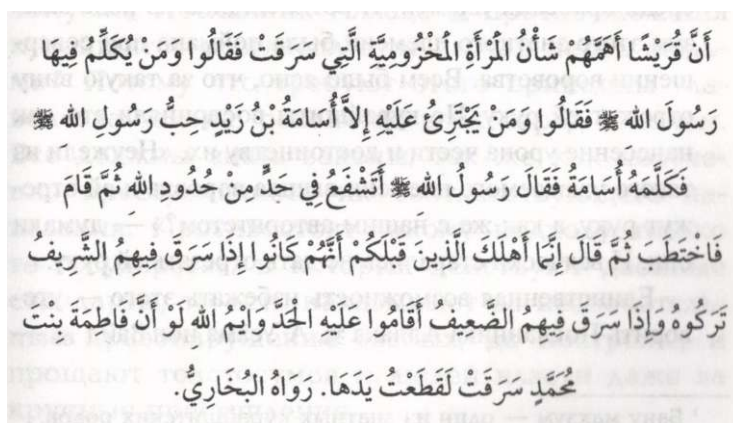 أَنَّ قُرَيْشًا أَهَمَّهُمْ شَأْنُ المَرْأَةِ المَخْزُومِيَّةِ الَّتِي سَرَقَتْ فَقَالُوا وَمَنْ يُكَلِّمُ فِيهَا
رَسُولَ اللهِ ﷺ فَقَالُوا وَمَنْ يَجْتَرِئُ عَلَيْهِ إِلاَّ أُسَامَةُ بْنُ زَيْدٍ حِبُّ رَسُولِ اللهِ ﷺ
فَكَلَّمَهُ أُسَامَةُ فَقَالَ رَسُولُ اللهِ ﷺ أَتَشْفَعُ فِي حَدٍّ مِنْ حُدُودِ اللهِ ثُمَّ قَامَ
فَاخْتَطَبَ ثُمَّ قَالَ إِنَّمَا أَهْلَكَ الَّذِينَ قَبْلَكُمْ أَنَّهُمْ كَانُوا إِذَا سَرَقَ فِيهِمُ الشَّرِيفُ
تَرَكُوهُ وَإِذَا سَرَقَ فِيهِمُ الضَّعِيفُ أَقَامُوا عَلَيْهِ الحَدَّ وَايْمُ اللهِ لَوْ أَنَّ فَاطِمَةَ بِنْتَ
مُحَمَّدٍ سَرَقَتْ لَقَطَعْتُ يَدَهَا. رَوَاهُ البُخَارِيُّ.